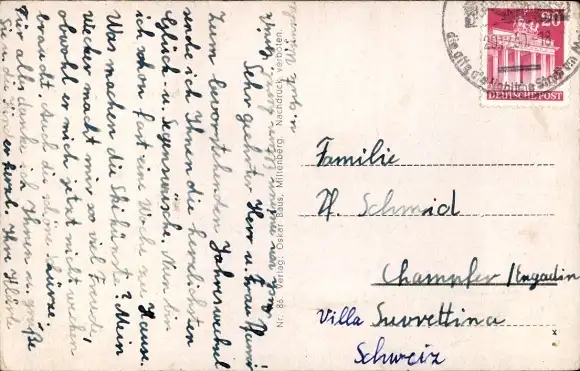 Sehr geehrter Herr u. Frau
Zum bevorstehenden Jahreswechsel
sende ich Ihnen die herzlichsten
Glück- u. Segenswünsche. Nun bin
ich schon fast eine Woche zu Hause.
Was machen die Skikünste? Mein
Wecker macht mir so viel Freude,
obwohl er mich jetzt nicht wecken
braucht. Auch die schöne Schürze.
Für alles danke ich Ihnen u. grüße
Sie
Ihre
Nr. 86. Verlag: Oskar Baus, Miltenberg. Nachdruck verboten.
20
DEUTSCHE POST
Familie
Pf. Schmid
Champfer / Engadin
Villa Suvrettina
Schweiz